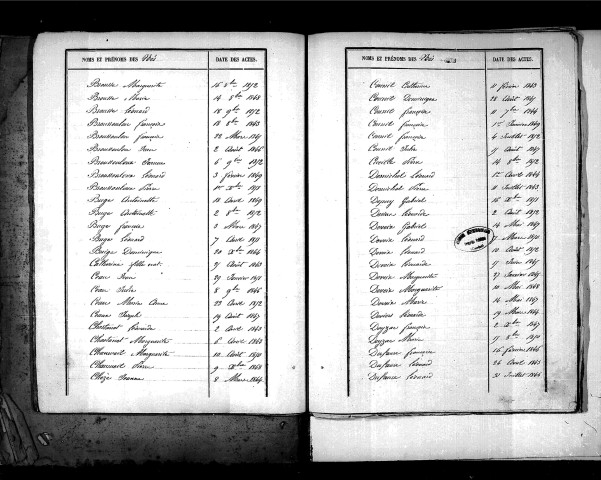 NOMS ET PRÉNOMS DES Dcés DATE DES ACTES.
Brousse Marguerite 16 8bre 1872
Brousse Marie 14 8bre 1868
Brousse Léonard 18 9bre 1872
Broussouloux François 18 8bre 1863
Broussouloux François 22 Mars 1867
Broussouloux Jean 2 Août 1866
Broussouloux 6 9bre 1872
Broussouloux Léonard 3 février 1869
Broussouloux Pierre 1er Xbre 1871
Buge Antoinette 18 Avril 1869
Buge Antoinette 2 8bre 1872
Buge François 3 Mars 1867
Buge Léonard 7 Avril 1871
Buige Dominique 20 Xbre 1864
Catherine fille nat. 21 Août 1863
Ceau Jean 29 Janvier 1871
Ceau Julie 8 9bre 1866
Ceau Marie Anne 22 Avril 1872
Ceaux Joseph 19 Août 1867
Chastanet Léonarde 2 Avril 1863
Chastanet Marguerite 6 Avril 1863
Chauviat Marguerite 10 Août 1870
Chauviat Pierre 9 Xbre 1868
Chèze Jeanne 8 Mars 1864
NOMS ET PRÉNOMS DES Dcés DATE DES ACTES.
Counil Catherine 11 février 1863
Counil Dominique 28 Août 1864
Counil François 11 7bre 1866
Counil François 15 Janvier 1869
Counil François 6 Juillet 1872
Counil Julie 17 Août 1867
Pierre 14 8bre 1872
Domichel Léonard 12 Avril 1864
Domichel Pierre 11 Juillet 1863
Gabriel 16 Xbre 1871
Léonarde 2 Août 1872
Gabriel 14 Mai 1867
Léonard 7 Mars 1870
Léonard 12 Août 1872
Léonarde 17 Juin 1867
Marguerite 27 Janvier 1867
Marguerite 10 Mai 1868
Marie 14 Mai 1867
Léonard 19 Mars 1864
Doyzon François 2 Xbre 1867
Doyzon Marie 17 8bre 1870
Dufaure François 16 février 1866
Dufaure Léonard 26 Avril 1863
Dufaure Léonard 31 Juillet 1866